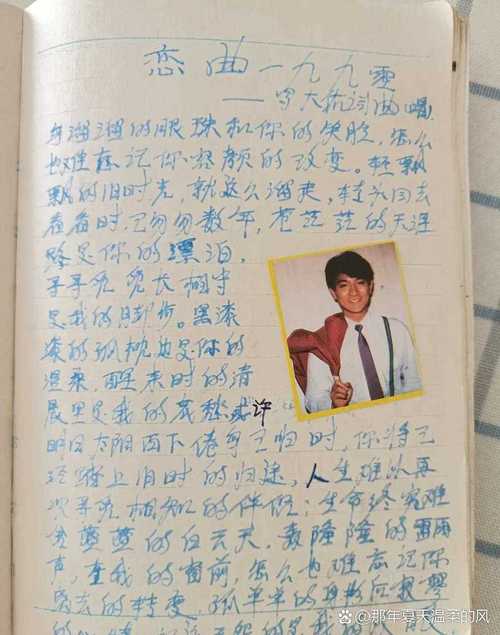 恋曲一九九零
——罗大佑词曲唱
乌溜溜的眼珠和你的笑脸,怎么
也难忘记你容颜的改变。轻飘
飘的旧时光,就这么溜走,转头回去
看看时,已匆匆数年,苍茫茫的天涯
路是你的漂泊,
寻寻觅觅长相守
是我的脚步。黑漆
漆的孤枕边是你的
温柔,醒来时的清
晨里是我的哀愁或许
明日太阳西下倦鸟已归时,你将已
经踏上旧时的归途,人生难再
次寻觅相知的伴侣,生命终究难
舍蓝蓝的白云天,轰隆隆的雷雨
声,在我的窗前,怎么也难忘记你
离去的转变,孤单单的身影后寂寥
的是我的
@那年夏天温柔的风